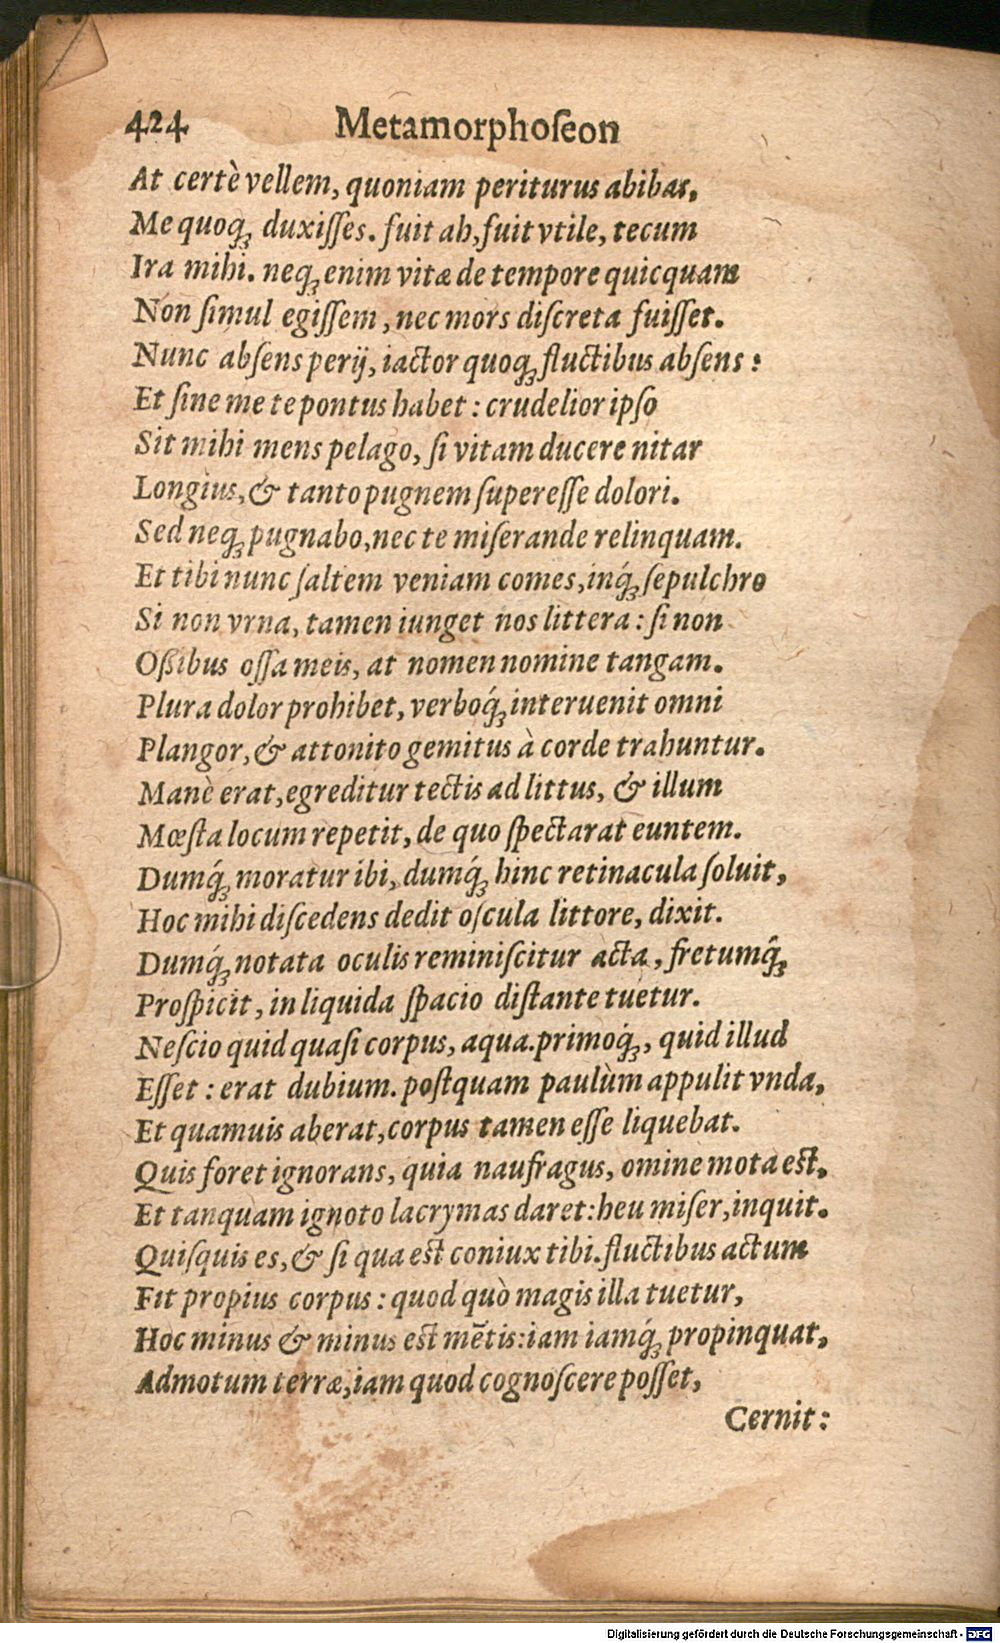 424 Metamorphoſeon
At certè vellem, quoniam periturus abibas,
Me quoq; duxiſſes. fuit ah, fuit vtile, tecum
Ira mihi. neq; enim vitæ de tempore quicquam
Non ſimul egiſſem, nec mors diſcreta fuiſſet.
Nunc abſens perij, iactor quoq; fluctibus abſens:
Et ſine me te pontus habet: crudelior ipſo
Sit mihi mens pelago, ſi vitam ducere nitar
Longius, & tanto pugnem ſupereſſe dolori.
Sed neq; pugnabo, nec te miſerande relinquam.
Et tibi nunc ſaltem veniam comes, inq́; ſepulchro
Si non vrna, tamen iunget nos littera: ſi non
Oßibus oſſa meis, at nomen nomine tangam.
Plura dolor prohibet, verboq́; interuenit omni
Plangor, & attonito gemitus à corde trahuntur.
Manè erat, egreditur tectis ad littus, & illum
Mœſta locum repetit, de quo ſpectarat euntem.
Dumq́; moratur ibi, dumq́; hinc retinacula ſoluit,
Hoc mihi diſcedens dedit oſcula littore, dixit.
Dumq́; notata oculis reminiſcitur acta, fretumq́;
Proſpicit, in liquida ſpacio diſtante tuetur.
Neſcio quid quaſi corpus, aqua. primoq́;, quid illud
Eſſet: erat dubium. poſtquam paulùm appulit vnda,
Et quamuis aberat, corpus tamen eſſe liquebat.
Quis foret ignorans, quia naufragus, omine mota eſt,
Et tanquam ignoto lacrymas daret: heu miſer, inquit.
Quiſquis es, & ſi qua eſt coniux tibi. fluctibus actum
Fit propius corpus: quod quò magis illa tuetur,
Hoc minus & minus eſt mẽtis: iam iamq́; propinquat,
Admotum terræ, iam quod cognoſcere poſſet,
Cernit:
Digitalisierung gefördert durch die Deutsche Forschungsgemeinschaft - DFG